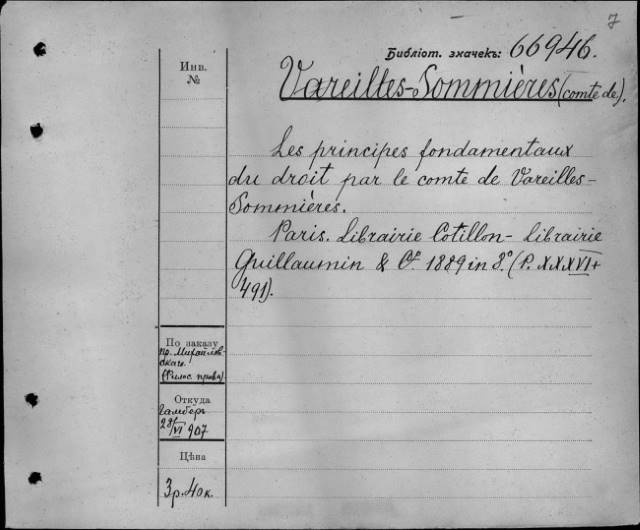 7
Библіот. значекъ: 66946.
Инв.
№
Vareilles-Sommières (comte de).
Les principes fondamentaux
du droit par le comte de Vareilles-
Sommières.
Paris. Librairie Cotillon - Librairie
Guillaumin & Cie. 1889 in 8.° (P. XXXVI+
491).
По заказу
пр. Михайлов-
скаго.
(Филос. права)
Откуда
Гамберъ
28/VI 907
Цѣна
3 р. 40 к.